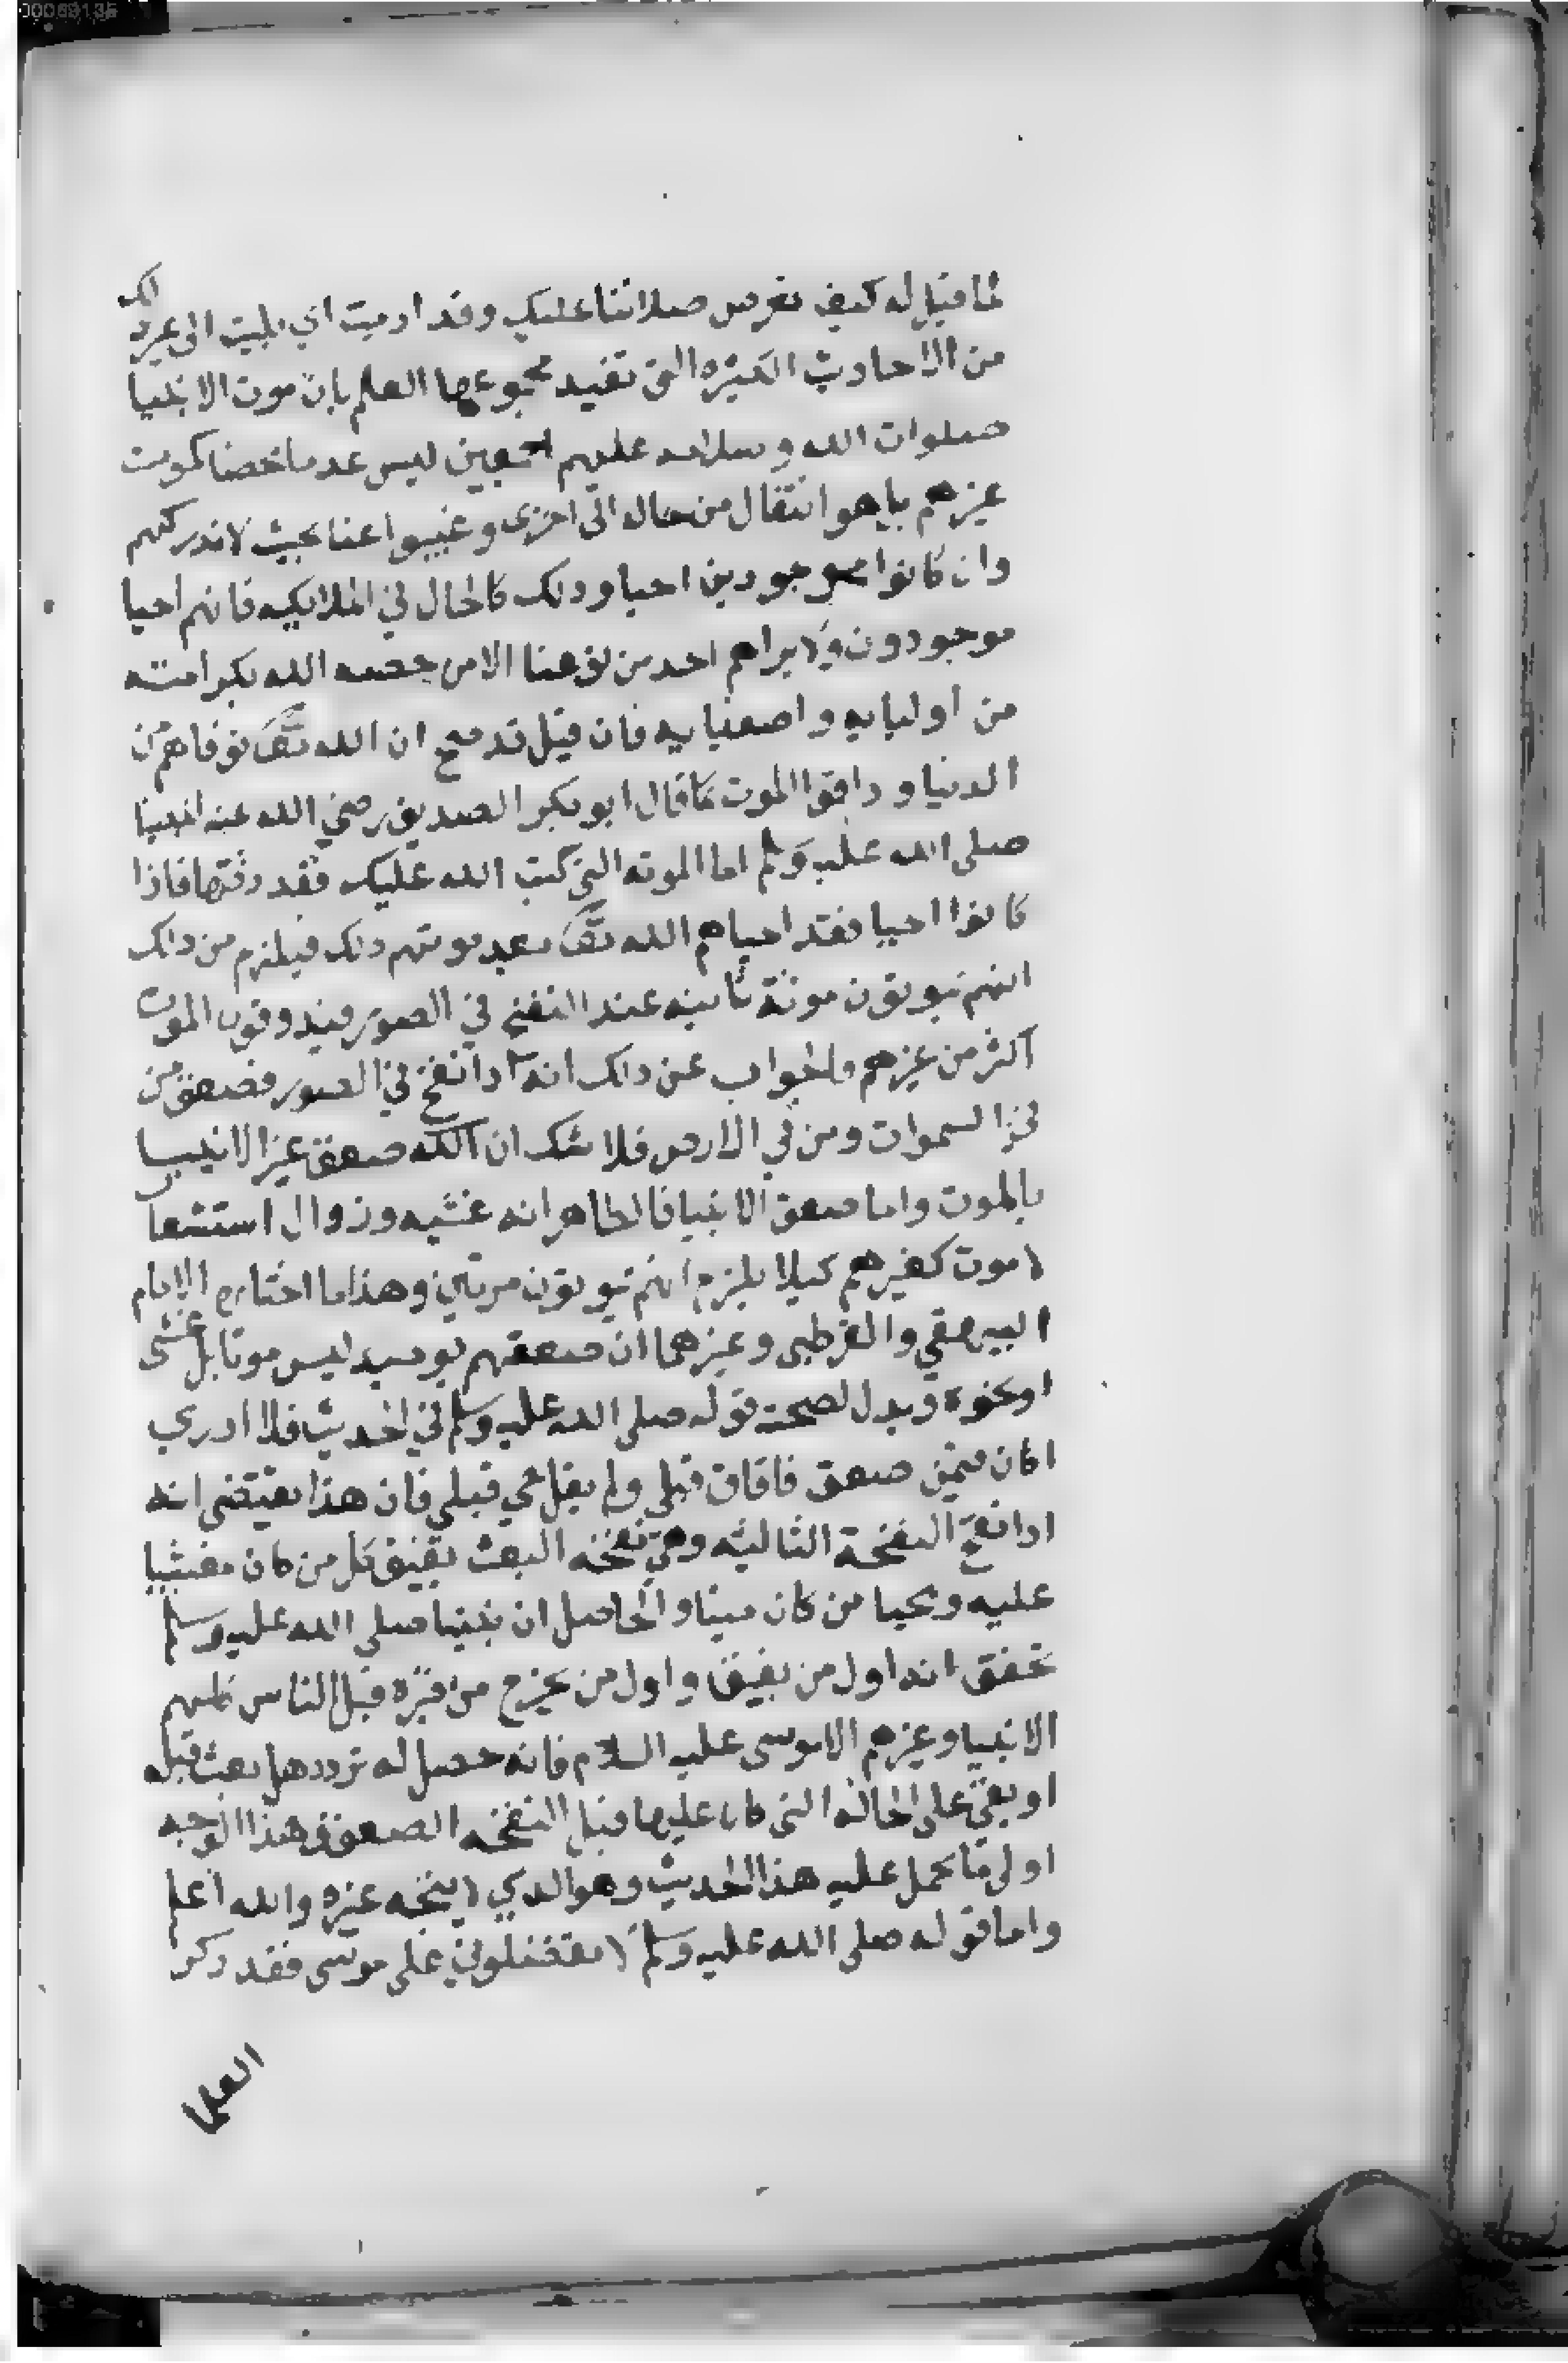 لما قيل له كيف تعرض صلاتنا عليك وقد ارميت اي بليت الى غير ذلك
من الاحاديث الكثيره التى تفيد مجموعها العلم بان موت الانبيا
صلوات الله وسلامه عليهم اجمعين ليس عدما محضا كموت
غيرهم بل هو انتقال من حال الى اخرى وغيبوا عنا بحيث لا ندركهم
وان كانوا موجودين احيا ودلك كالحال في الملايكه فانهم احيا
موجودون ولا يراهم احد من نوعنا الا من خصه الله بكرامته
من اوليايه واصفيايه فان قيل قد صح ان الله تعالى توفاهم من
الدنيا وذاقوا الموت كما قال ابو بكر الصديق رضي الله عنه لنبينا
صلى الله عليه وسلم اما الموته التي كتب الله عليك فقد ذقتها فاذا
كانوا احيا فقد احياهم الله تعالى بعد موتهم دلك فيلزم من دلك
انهم يموتون موتة ثانيه عند النفخ في الصور فيذوقون الموت
اكثر من غيرهم والجواب عن دلك انه ادا نفخ في الصور فصعق من
في السموات ومن في الارض فلا شك ان صعق غير الانبيا
بالموت واما صعق الانبيا فالظاهر انه غشيه وزوال استشعار
لا موت كغيرهم كيلا يلزم انهم يموتون مرتين وهذا ما اختاره الامام
البيهقي والقرطبى وغيرهما ان صعقهم يوميد ليس موتا بل غشى
او نحوه ويدل لصحته قوله صلى الله عليه وسلم في الحديث فلا ادري
اكان فيمن صعق فافاق قبلى ولم يقل حي قبلي فان هذا يقتضى انه
ادا نفخ النفخة الثالثه وهي نفخه البعث يفيق كل من كان مغشيا
عليه ويحيا من كان ميتا والحاصل ان نبينا صلى الله عليه وسلم
تحقق انه اول من يفيق واول من يخرج من قبره قبل الناس كلهم
الانبيا وغيرهم الا موسى عليه السلام فانه حصل له تردد هل بعث قبله
او بقي على الحاله التى كان عليها قبل النفخه الصعق وهذا الوجه
اولى ما يحمل عليه هذا الحديث وهو الدي لا يتجه غيره والله اعلم
واما قوله صلى الله عليه وسلم لا تفضلوني على موسى فقد ذكر
العلما